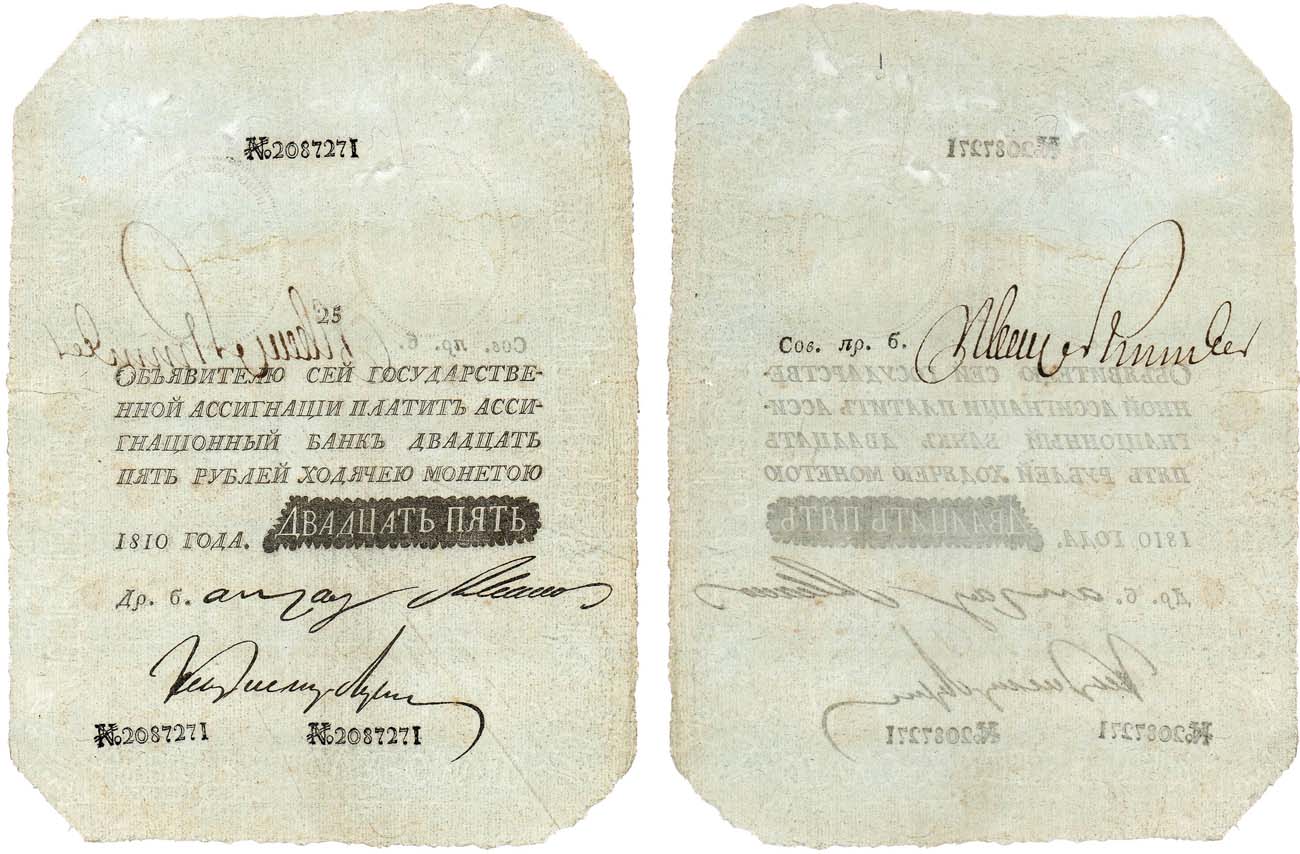 №2087271
25
ОБЪЯВИТЕЛЮ СЕЙ ГОСУДАРСТВЕ-
ННОЙ АССИГНАЦІИ ПЛАТИТЪ АССИ-
ГНАЦІОННЫЙ БАНКЪ ДВАДЦАТЬ
ПЯТЬ РУБЛЕЙ ХОДЯЧЕЮ МОНЕТОЮ
1810 ГОДА. ДВАДЦАТЬ ПЯТЬ
Др. б.
№2087271 №2087271
Сов. пр. б.